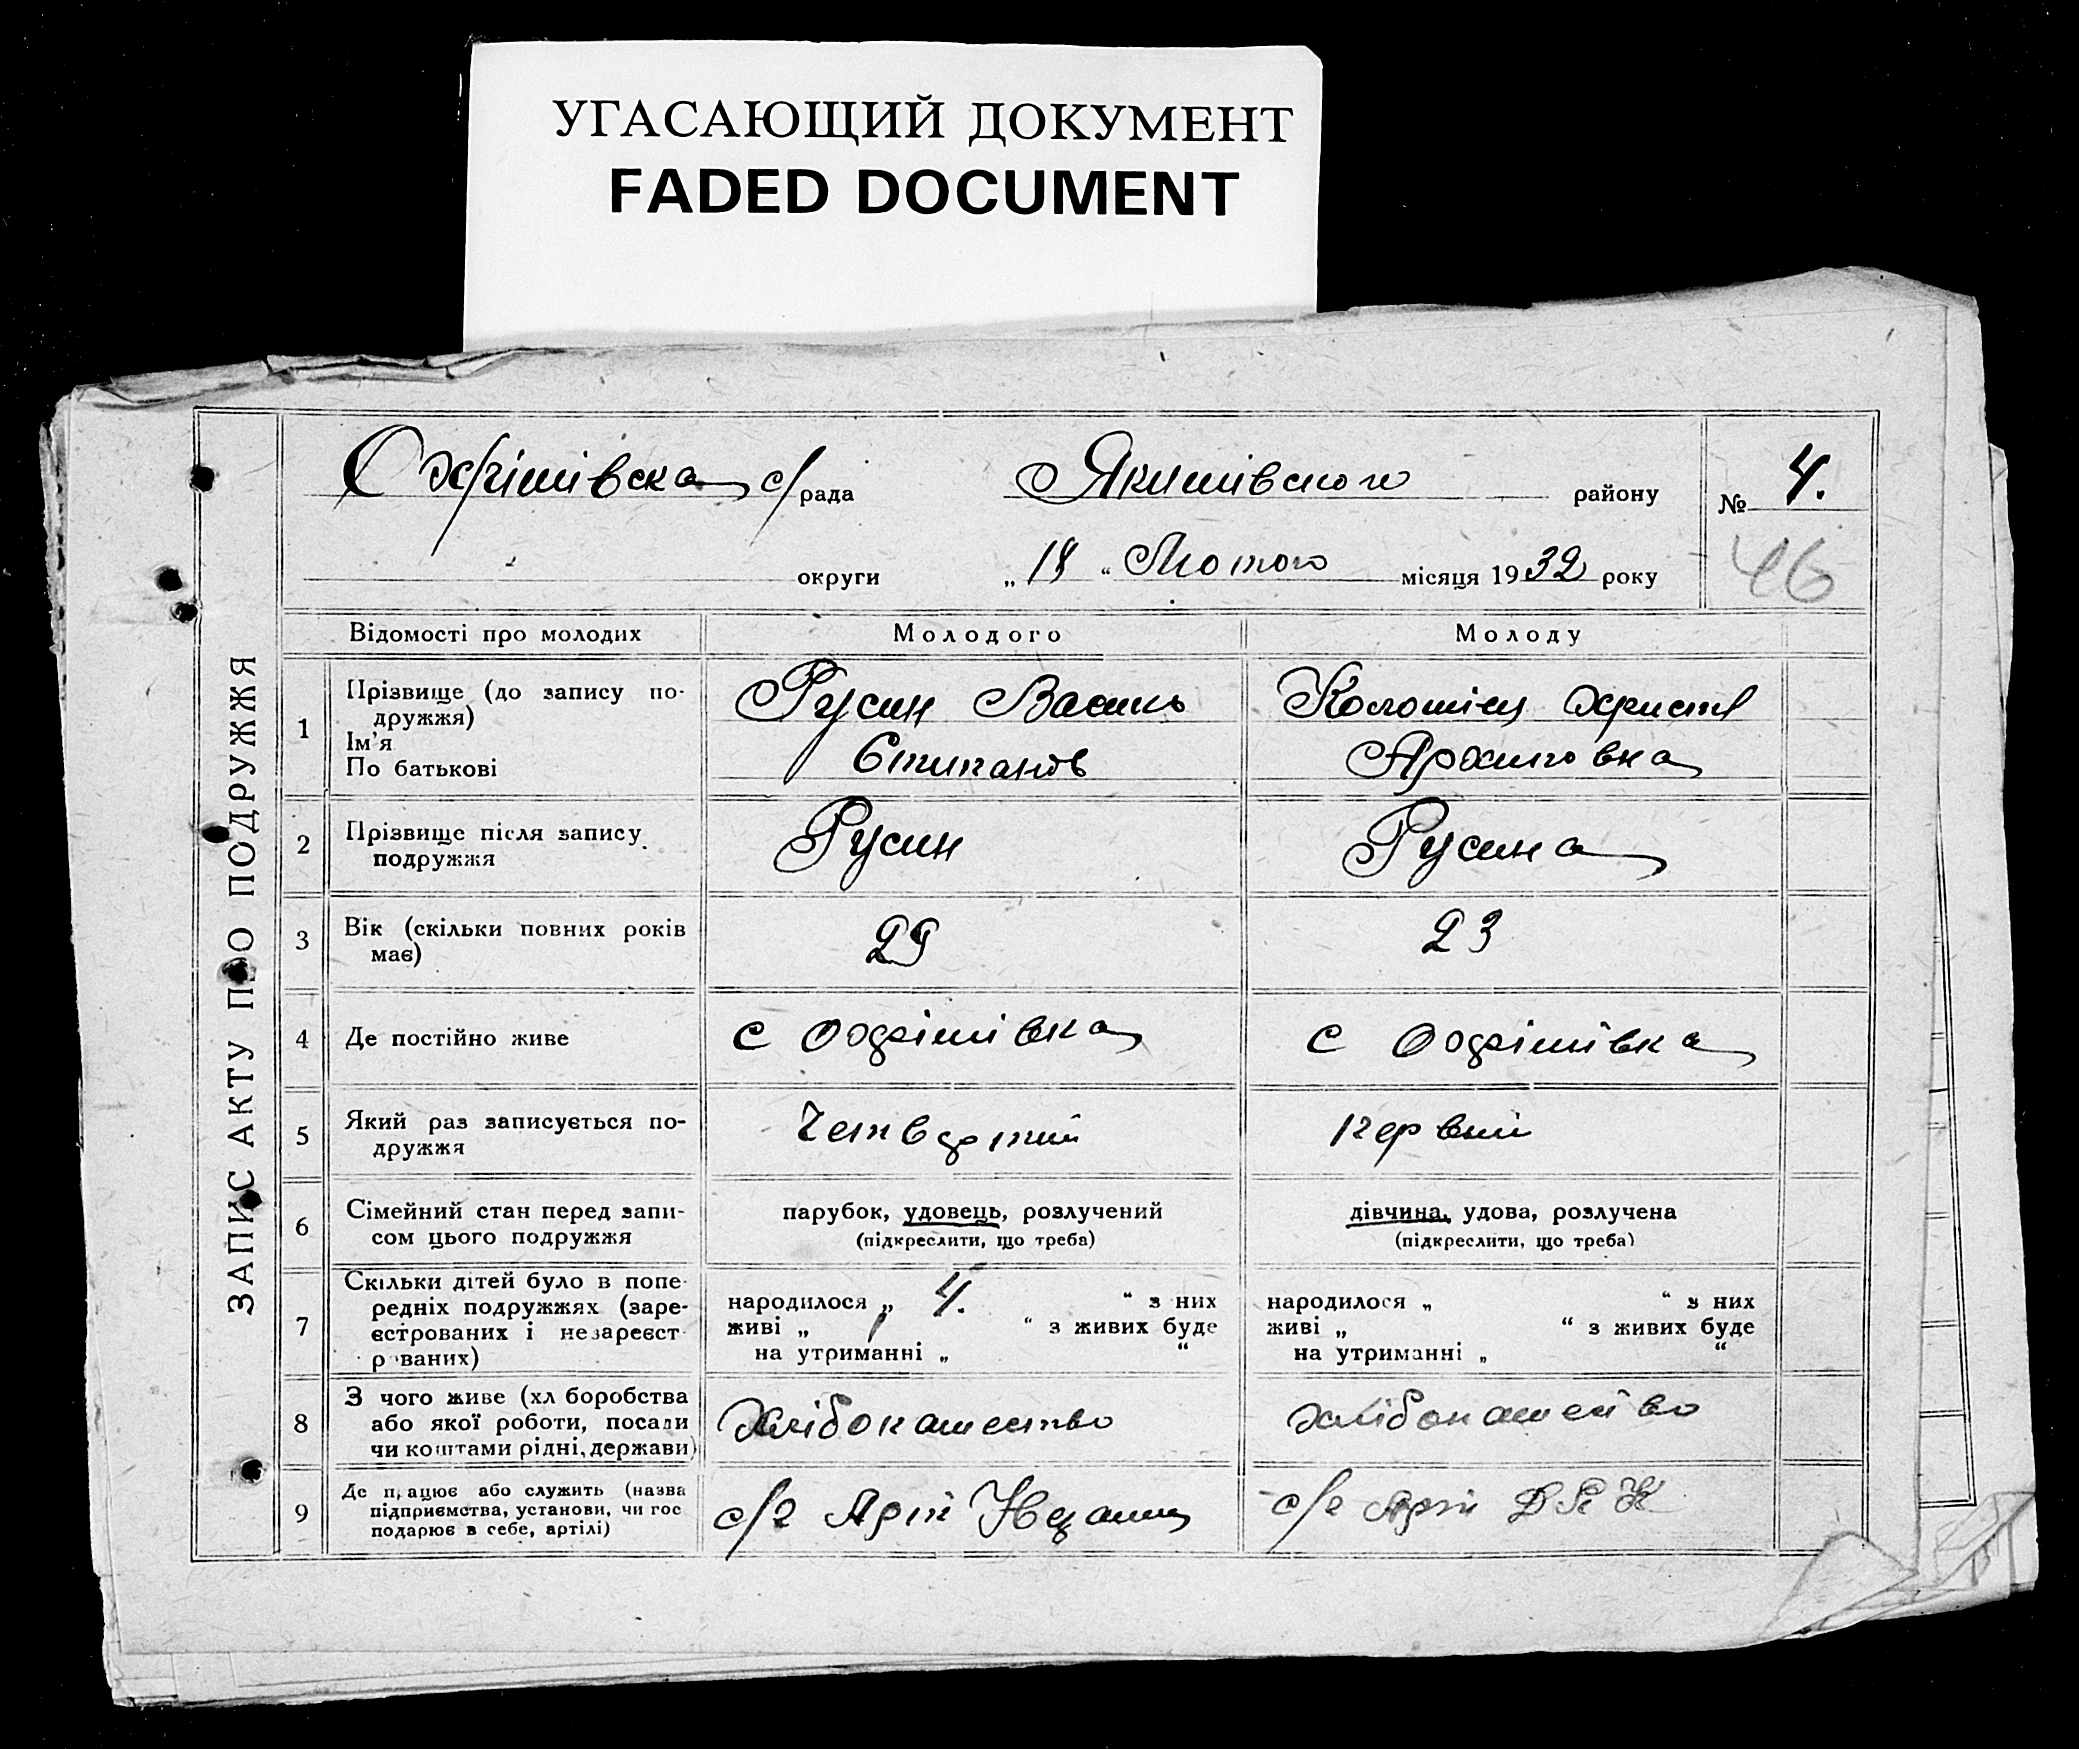 УГАСАЮЩИЙ ДОКУМЕНТ
FADED DOCUMENT
Охрімівска с/рада Якимівского району № 4.
округи „ 18 “ Лютого місяця 1932 року 46
ЗАПИС АКТУ ПРО ПОДРУЖЖЯ
Відомості про молодих Молодого Молоду
1 Прізвище (до запису по-
дружжя)
Ім'я
По батькові
Русин Василь
Степанов
Коломієц Христя
Архиповна
2 Прізвище після запису
подружжя
Русин
Русина
3 Вік (скільки повних років
має)
29
23
4 Де постійно живе
с Охрімівка
с Охрімівка
5 Який раз записується по-
дружжя
первий
6 Сімейний стан перед запи-
сом цього подружжя
парубок, удовець, розлучений
(підкреслити, що треба)
дівчина, удова, розлучена
(підкреслити, що треба)
7 Скільки дітей було в попе-
редніх подружжях (заре-
єстрованих і незареєст-
рованих)
народилося „ 4. “ з них
живі „ “ з живих буде
на утриманні „ “
народилося „ “ з них
живі „ “ з живих буде
на утриманні „ “
8 З чого живе (хліборобства
або якої роботи, посади
чи коштами рідні, держави)
хлібопашество
9 Де працює або служить (назва
підприємства, установи, чи гос
подарює в себе, артілі)
с/г Арті
с/г Арті